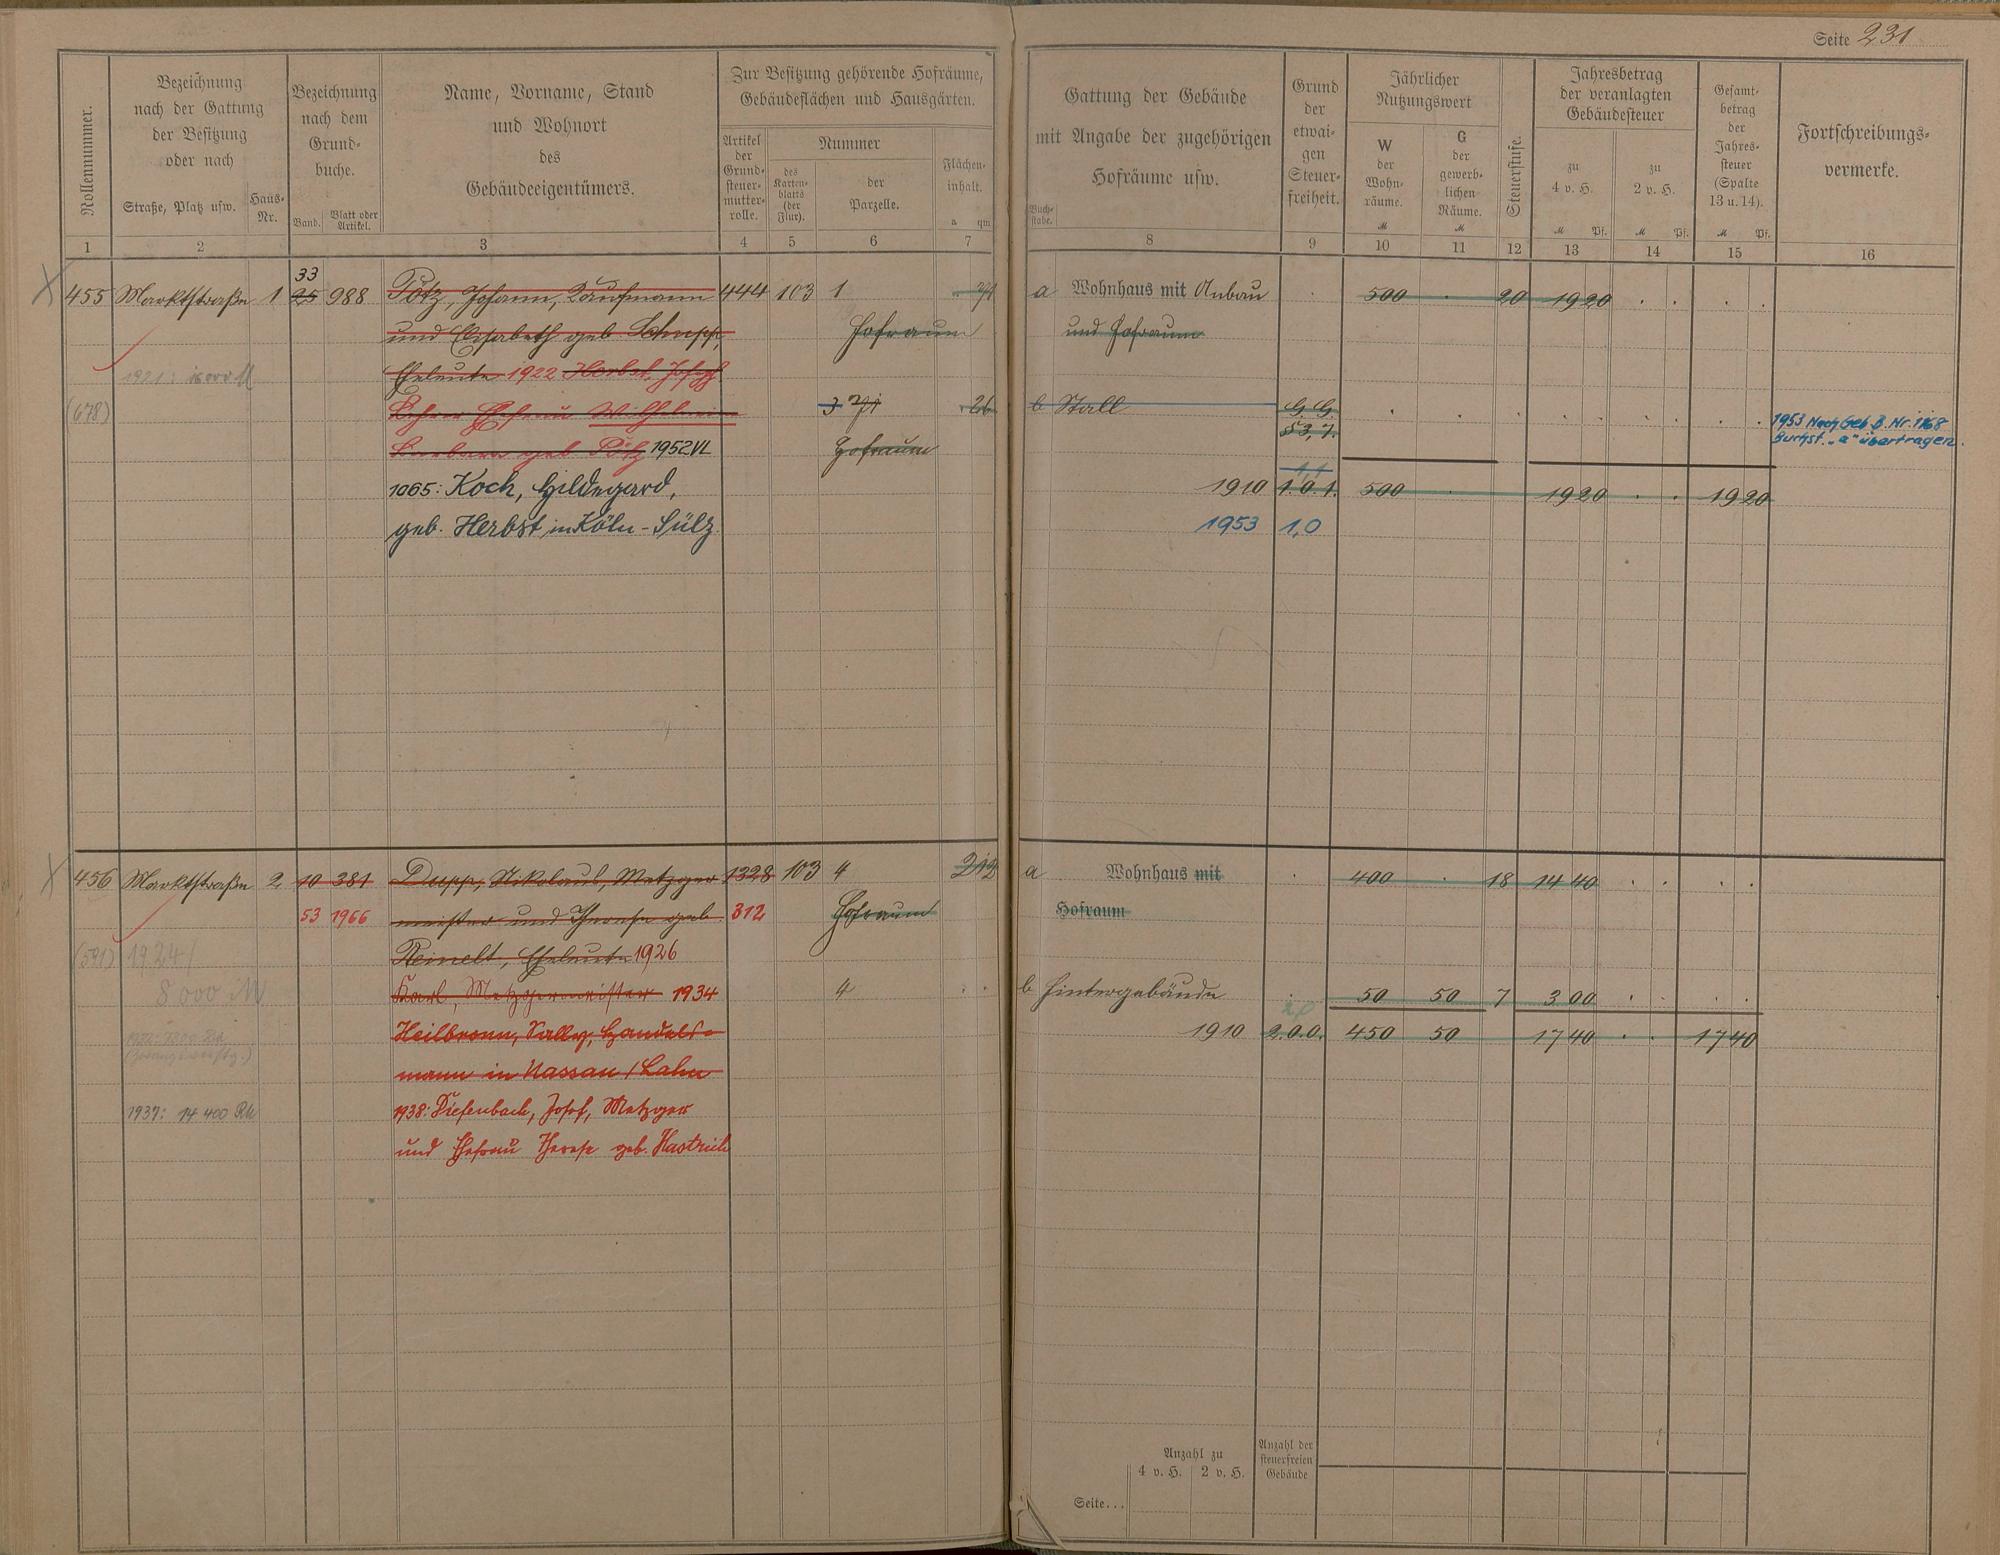 Seite 231
Rollennummer.
Bezeichnung
nach der Gattung
der Besitzung
oder nach
Straße, Platz usw.
Haus-
Nr.
Bezeichnung
nach dem
Grund-
buche.
Band.
Blatt oder
Artikel.
Name, Vorname, Stand
und Wohnort
des
Gebäudeeigentümers.
Zur Besitzung gehörende Hofräume,
Gebäudeflächen und Hausgärten.
Artikel
der
Grund-
steuer-
mutter-
rolle.
Nummer
des
Karten-
blatts
(der
Flur).
der
Parzelle.
Flächen-
inhalt.
a qm
Gattung der Gebäude
mit Angabe der zugehörigen
Hofräume usw.
Buch-
stabe.
Grund
der
etwai-
gen
Steuer-
freiheit.
Jährlicher
Nutzungswert
W
der
Wohn-
räume.
M
G
der
gewerb-
lichen
Räume.
M
Steuerstufe.
Jahresbetrag
der veranlagten
Gebäudesteuer
zu
4 v. H.
M Pf.
zu
2 v. H.
M Pf.
Gesamt-
betrag
der
Jahres-
steuer
(Spalte
13 u. 14).
M Pf.
Fortschreibungs-
vermerke.
1 2 3 4 5 6 7 8 9 10 11 12 13 14 15 16
33
455 Marktstraße 1 25 988 Pötz, Johann, Kaufmann 444 103 1 a Wohnhaus mit Anbau 500 20 19 20
und Elisabeth geb. Schupp, Hofraum und Hofraum
Eheleute 1922 Herbst, Josef
1921:
(678) Lehrer Ehefrau Wilhelmine 3 26 b Stall G. G.
53, 7.
1953 Nach Geb. B. Nr. 1168
Buchst. „a" übertragen.
Barbara geb. Pötz 1952 VI Hofraum
1.1
1065: Koch, Hildegard, 1910 1. 0. 1. 500 19 20 19 20
geb. Herbst in Köln-Sülz 1953 1,0
456 Marktstraße 2 10 381 Dupp, Nikolaus, Metzger 1328 103 4 2 12 a Wohnhaus mit 400 18 14 40
53 1966 meister und Therese geb. 312 Hofraum Hofraum
(591) 1924/ Reinelt, Eheleute 1926
8 000 M Karl, Metzgermeister 1934 4 b Hintergebäude 50 50 7 3 00
Heilbronn, Sally, Handels- 1910 2. 0. 0. 450 50 17 40 17 40
mann in Nassau / Lahn
1937: 14 400 RM 1938: Diefenbach, Josef, Metzger
und Ehefrau Therese geb. Hastrich
Anzahl zu
4 v. H. 2 v. H.
Anzahl der
steuerfreien
Gebäude
Seite...